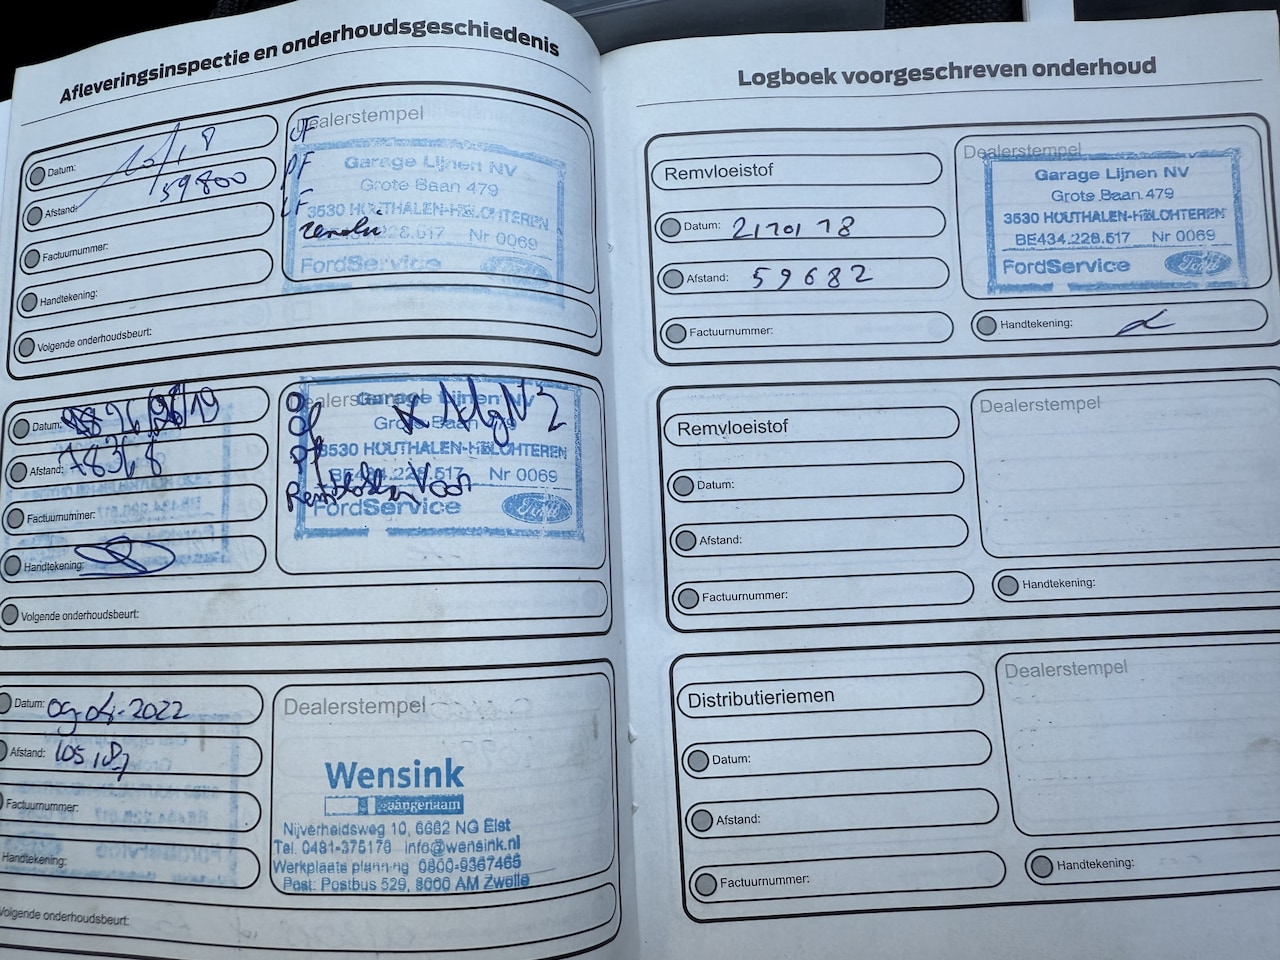 Afleveringsinspectie en onderhoudsgeschiedenis
Datum: 10/18
Afstand: 59800
Factuurnummer:
Handtekening:
Volgende onderhoudsbeurt:
Dealerstempel
OF
PF
LF
Garage Lijnen NV
Grote Baan 479
3530 HOUTHALEN-HELCHTEREN
BE434.228.517 Nr 0069
FordService
Ford
Datum: 26/ /19
Afstand: 78368
Factuurnummer:
Handtekening:
Volgende onderhoudsbeurt:
Dealerstempel
Garage Lijnen NV
Grote Baan 479
3530 HOUTHALEN-HELCHTEREN
BE434.228.517 Nr 0069
Remblokken Voor
FordService
Ford
Datum: 09-04-2022
Afstand: 105187
Factuurnummer:
Handtekening:
Volgende onderhoudsbeurt:
Dealerstempel
Wensink
aangenaam
Nijverheidsweg 10, 6662 NG Elst
Tel. 0481-375178 info@wensink.nl
Werkplaats planning 0800-9367465
Post: Postbus 529, 8000 AM Zwolle
Logboek voorgeschreven onderhoud
Remvloeistof
Datum: 2/10/18
Afstand: 59682
Factuurnummer:
Dealerstempel
Garage Lijnen NV
Grote Baan 479
3530 HOUTHALEN-HELCHTEREN
BE434.228.517 Nr 0069
FordService
Ford
Handtekening:
Remvloeistof
Datum:
Afstand:
Factuurnummer:
Dealerstempel
Handtekening:
Distributieriemen
Datum:
Afstand:
Factuurnummer:
Dealerstempel
Handtekening: